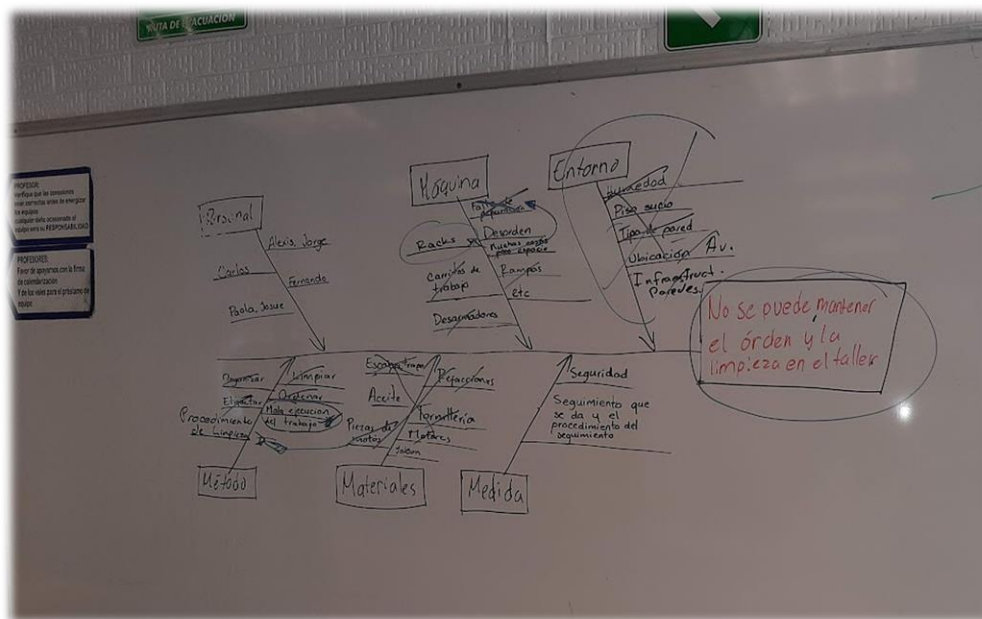 RUTA DE EVACUACIÓN
PROFESOR:
verifique que las conexiones
sean correctas antes de energizar
los equipos
cualquier daño ocasionado al
equipo será su RESPONSABILIDAD
PROFESORES:
Favor de apoyarnos con la firma
de calendarización
Y de los vales para el préstamo de
equipo
Personal
Alexis, Jorge
Carlos
Fernando
Paola, Josue
Máquina
Falta de
Desorden
Racks
Muchas
poco espacio
Carritos de
trabajo
Rampas
etc
Desarmadores
Entorno
Humedad
Piso sucio
Tipo de pared
Ubicación Av.
Infraestruct.
Paredes.
No se puede mantener
el órden y la
limpieza en el taller
Organizar
Limpiar
Etiquetar
Ordenar
Mala ejecucion
del trabajo
Procedimiento
de Limpieza
Método
Escobas, trapo
Refacciones
Aceite
Tornillería
Piezas de
motos
Motores
Jabon
Materiales
Seguridad
Seguimiento que
se da y el
procedimiento del
seguimiento
Medida